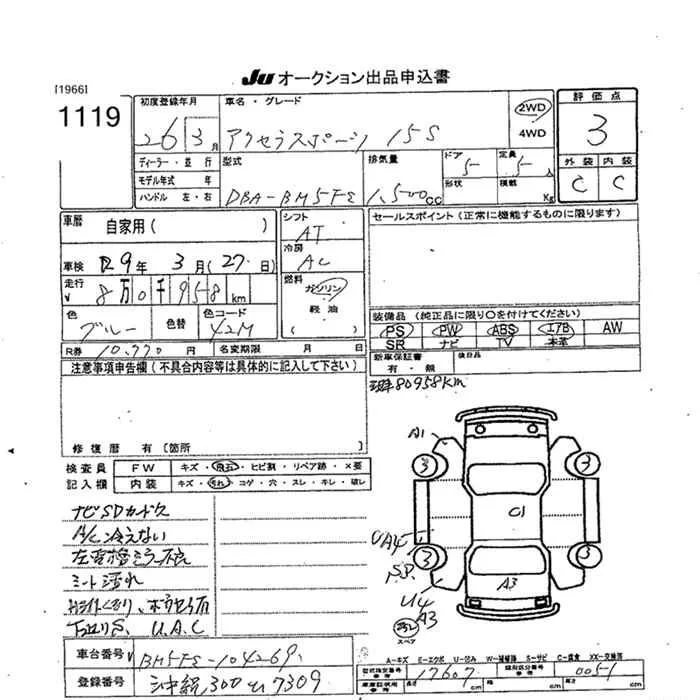 Ju オークション出品申込書
[1966]
1119
初度登録年月
26 3月
車名・グレード
アクセラスポーツ 15S
2WD
4WD
評価点
3
外装 内装
C C
ディーラー・並行
モデル年式 年
ハンドル 左・右
型式
DBA-BM5FS
排気量
1,500cc
ドア
5
形状
定員
5人
積載
Kg
車歴
自家用( )
車検 R9年 3月(27日)
走行 8万0千958km
色
ブルー
色替
色コード
42M
シフト
AT
冷房
AC
燃料
ガソリン
軽油
( )
セールスポイント(正常に機能するものに限ります)
装備品(純正品に限り○を付けてください)
PS PW ABS エアB AW
SR ナビ TV 本革
R券 10,770円 名変期限 月 日
新車保証書
有・無
後日品
注意事項申告欄(不具合内容等は具体的に記入して下さい)
現車80958Km
修復歴 有〔箇所
検査員
記入欄
FW キズ・飛石・ヒビ割・リペア跡・×要
内装 キズ・汚れ・コゲ・穴・スレ・キレ・破レ
ナビSDカード欠
A/C冷えない
シート汚れ
U.A.C
A1
3
3
G1
UA4
3
3
S.P.
U4
A3
A3
スペア
A-キズ E-エクボ U-凹み W-補修跡 S-サビ C-腐食 XX-交換済
車台番号 BM5FS-104269
登録番号 沖縄300 7309
17607
005-1
長さ cm 幅 cm 高さ cm